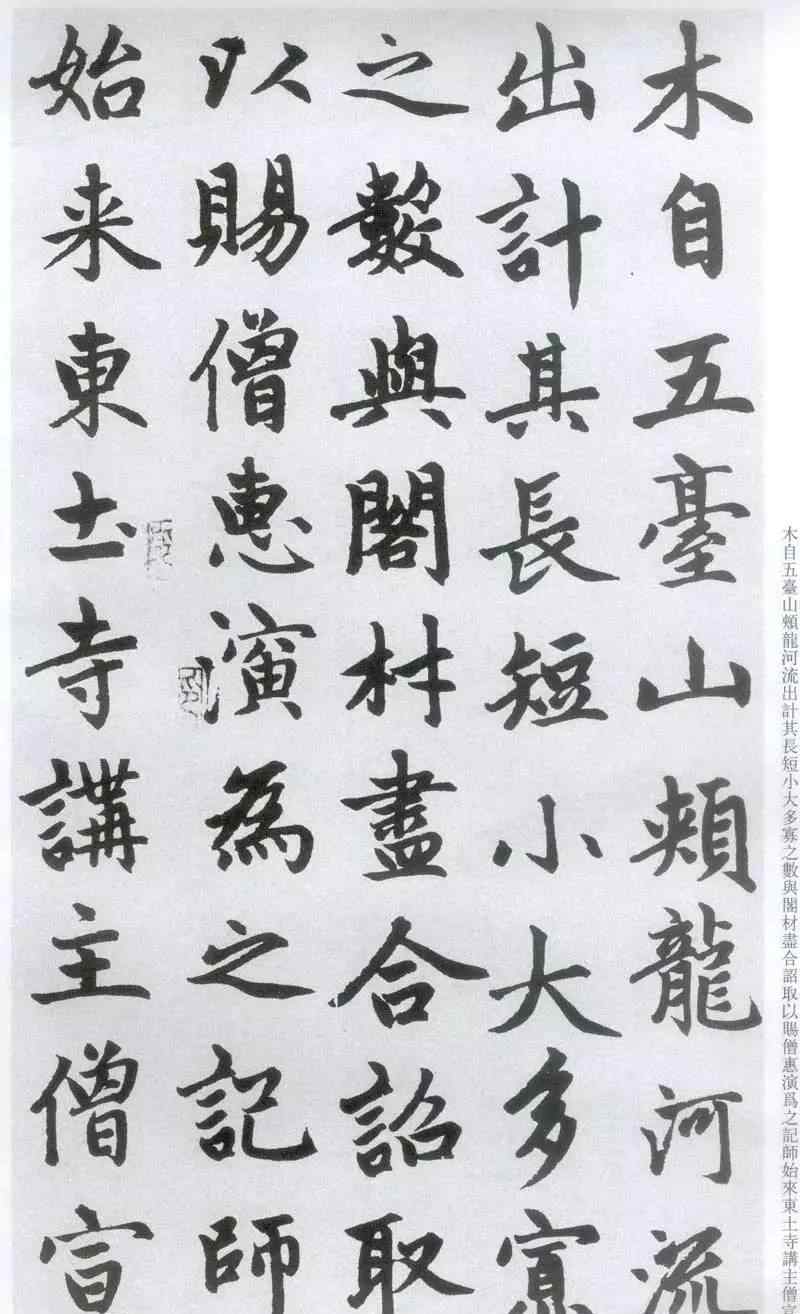 木自五臺山頰龍河流
出計其長短小大多寡
之數與閣材盡合詔取
以賜僧惠演為之記師
始来東土寺講主僧宣
木自五臺山頰龍河流出計其長短小大多寡之數與閣材盡合詔取以賜僧惠演爲之記師始來東土寺講主僧宣